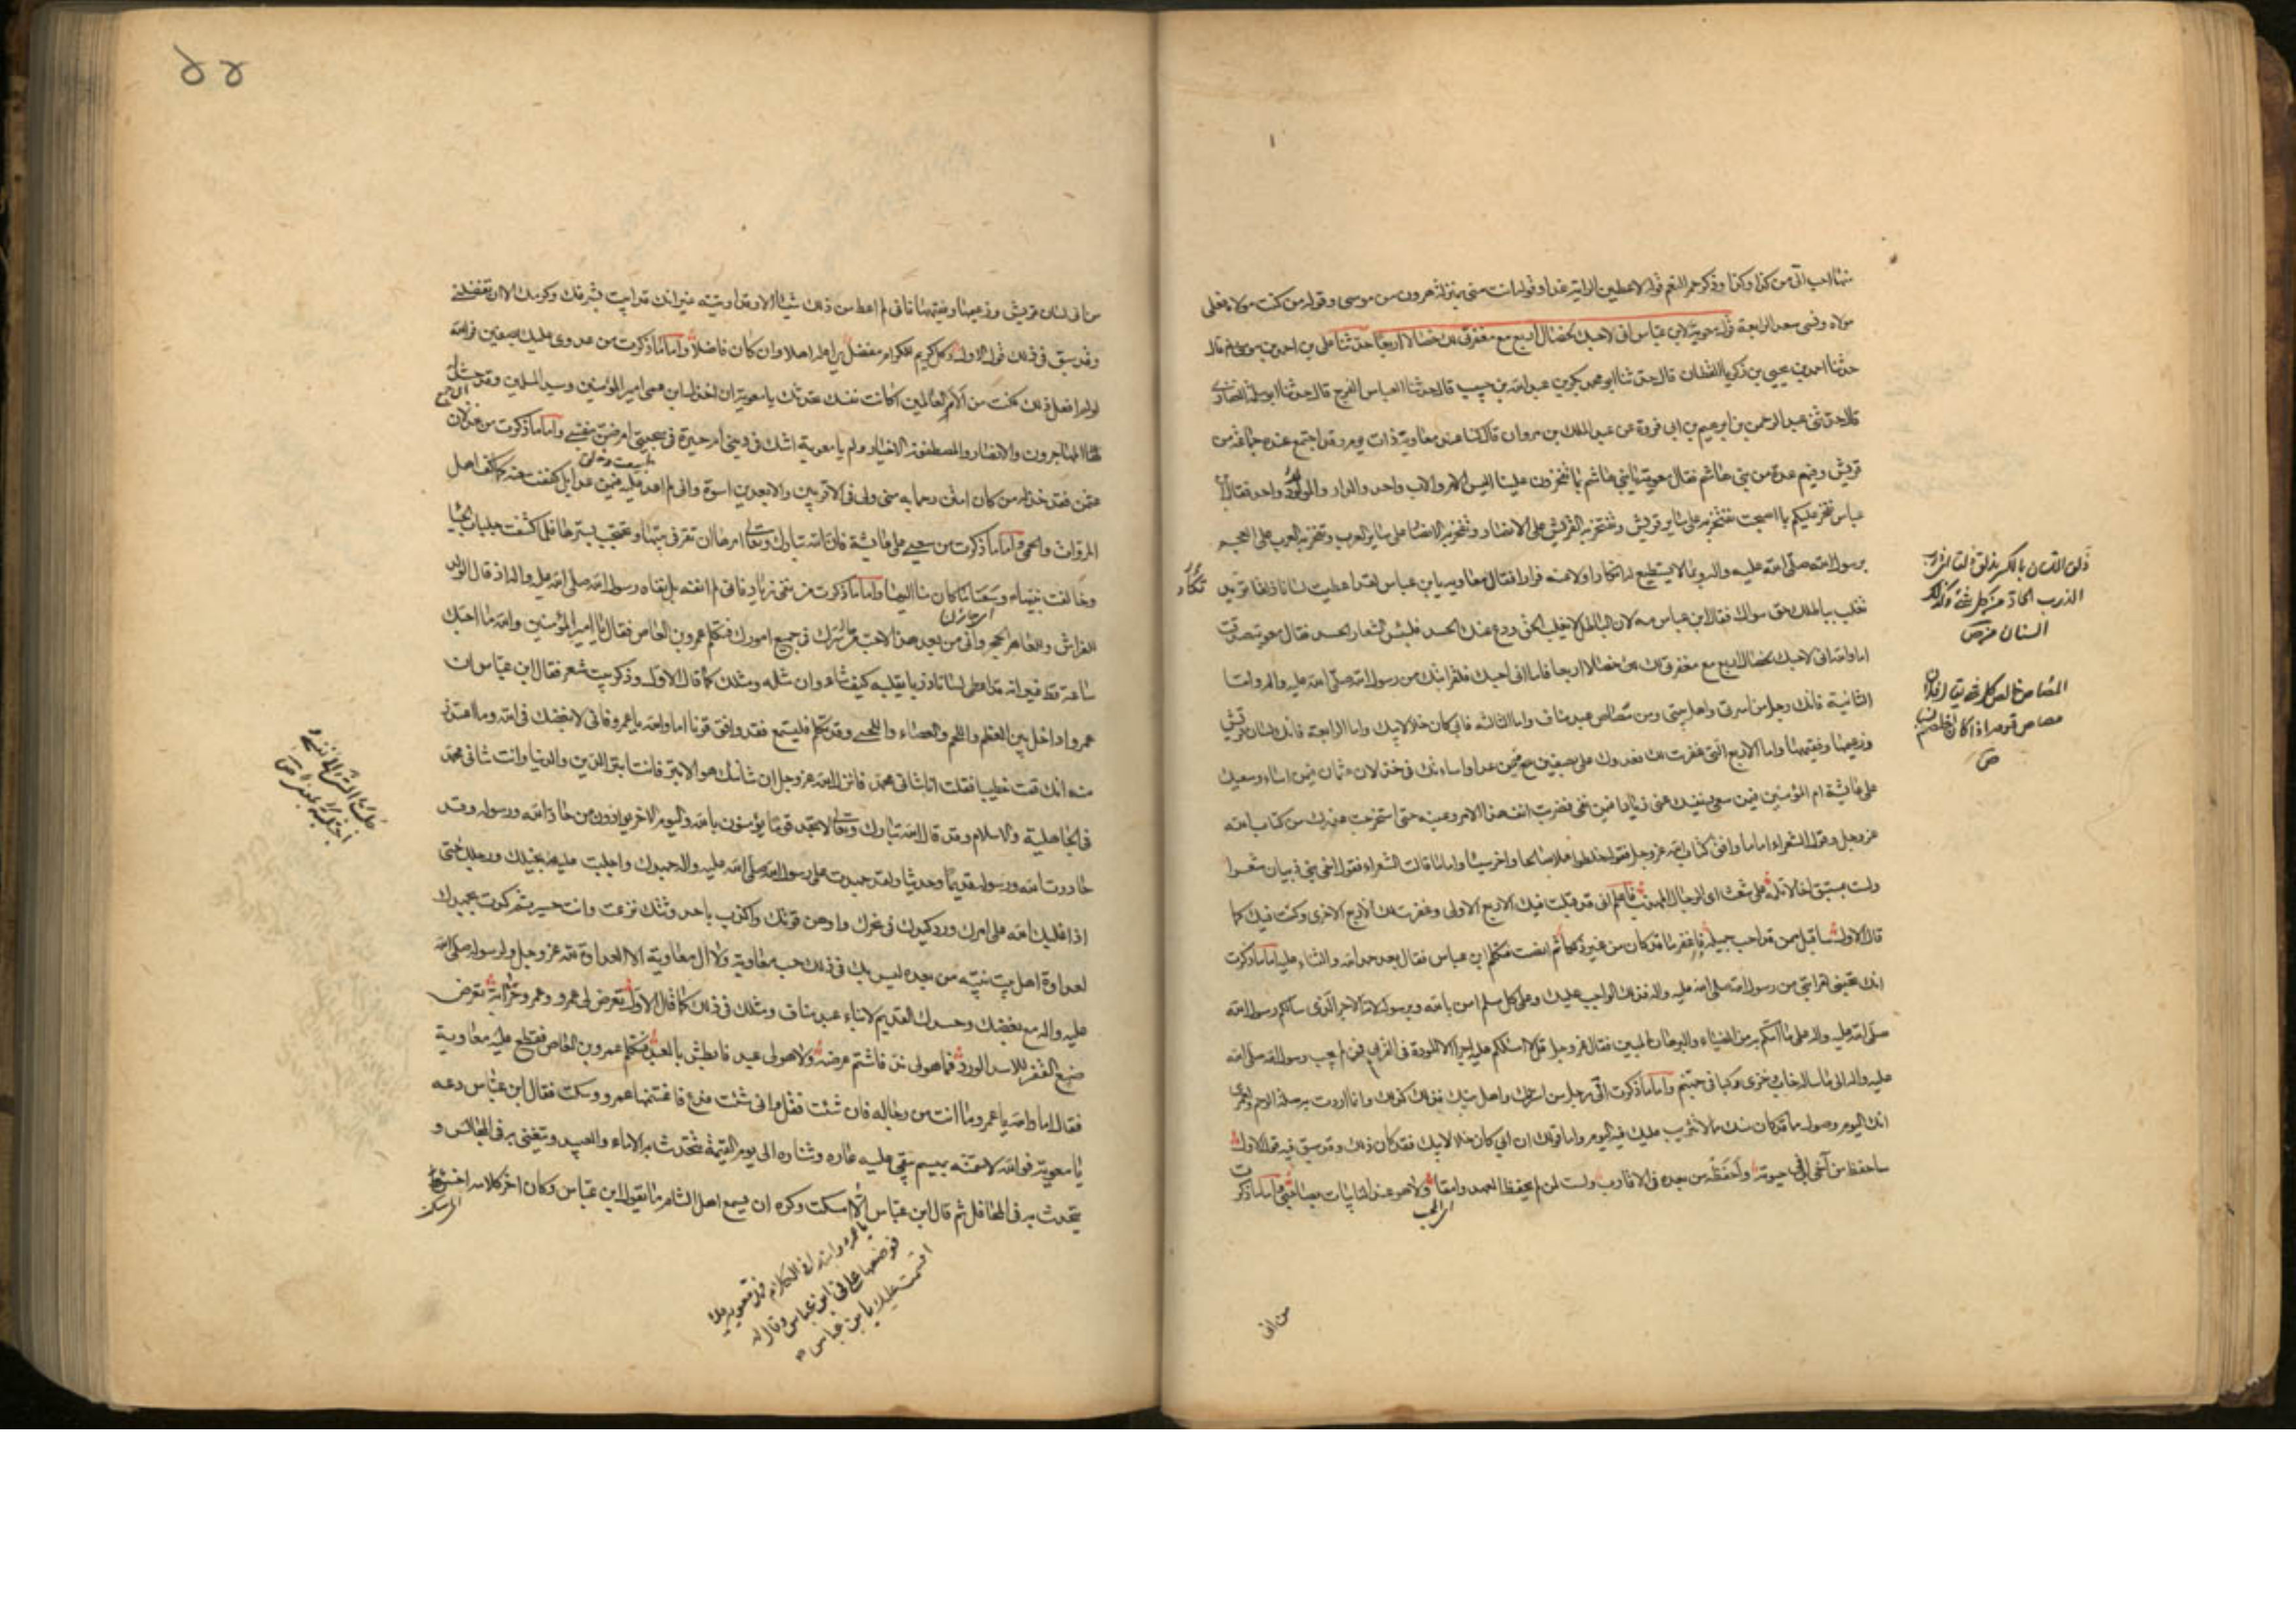 منها احب الی من كذا وكذا وذكر حمر النعم قوله لاعطين الراية غدا وقوله انت منی بمنزلة هرون من موسی وقوله من كنت مولاه فعلی
مولاه ونسی سعد الرابعة قول معوية لابن عباس انی لاحبك لخصال اربع مع مغفرتی لك خصالا اربعا حدثنا علی بن احمد بن موسی قال
حدثنا احمد بن يحيی بن زكريا القطان قال حدثنا ابو محمد بكر بن عبد الله بن حبيب قال حدثنا العباس الفرج قال حدثنا ابو سلمة الغفاری
قال حدثنی عبد الرحمن بن ابرهيم بن ابی فروة عن عبد الملك بن مروان قال كنا عند معاوية ذات يوم وقد اجتمع عنده جماعة من
قريش وفيهم عدة من بنی هاشم فقال معوية يا بنی هاشم بما تفخرون علينا اليس الام والاب واحد والدار والمولد واحد فقال ابن
عباس نفخر عليكم بما اصبحت تفتخر به علی ساير قريش وتفتخر به القريش علی الانصار وتفتخر به الانصار علی ساير العرب وتفتخر به العرب علی العجم
برسول الله صلی الله عليه واله وبما لا يستطيع له انكارا ولا منه فرارا فقال معاوية يابن عباس لقد اعطيت لسانا ذلقا تكاد
تغلب بباطلك حق سواك فقال ابن عباس مه لان الباطل لا يغلب الحق ودع عنك الحسد فلبئس الشعار الحسد فقال معوية صدقت
اما والله انی لاحبك لخصال اربع مع مغفرتی لك خصالا اربعا فاما انی احبك فلقرابتك من رسول الله صلی الله عليه واله واما
الثانية فانك رجل من اسرتی واهل بيتی ومن مصاص عبد مناف واما الثالثة فابی كان خلا لابيك واما الرابعة فانك لسان قريش
وزعيمها وفقيهها واما الاربع التی غفرت لك فعدوك علی بصفين مع من عدا واساءتك فی خذلان عثمان فيمن اساء وسعيك
علی عائشة ام المؤمنين فيمن سعی ونفيك عنی زيادا فيمن نفی فضربت انف هذا الامر وعينه حتی استخرجت عذرك من كتاب الله
عز وجل وقول الشعراء اما ما وافق كتاب الله عز وجل فقوله خلطوا عملا صالحا واخر سيئا واما ما قالت الشعراء فقول اخی بنی ذبيان شعرا
ولست بمستبق اخا لا تلمه علی شعث ای الرجال المهذب فاعلم انی قد قبلت فيك الاربع الاولی وغفرت لك الاربع الاخری وكنت فيك كما
قال الاول ساقبل ممن قد احب جميله فاغفر ما قد كان من غير ذلكا ثم انصت فتكلم ابن عباس فقال بعد حمد الله والثناء عليه اما ما ذكرت
انك تحبنی لقرابتی من رسول الله صلی الله عليه واله فذلك الواجب عليك وعلی كل مسلم امن بالله وبرسوله لانه الاجر الذی سالكم رسول الله
صلی الله عليه واله علی ما اتاكم به من الضياء والبرهان المبين فقال عز وجل قل لا اسئلكم عليه اجرا الا المودة فی القربی فمن لم يجب رسول الله صلی الله
عليه واله الی ما ساله خاب وخزی وكبا فی جهنم واما ما ذكرت انی رجل من اسرتك واهل بيتك فذلك كذلك وانما اردت به صلة الرحم ولعمری
انك اليوم وصول مما قد كان منك مما لا تثريب عليك فيه اليوم واما قولك ان ابی كان خلا لابيك فقد كان ذلك وقد سبق فيه قول الاول
ساحفظ من آخی ابی فی حيوته واحفظه من بعده فی الاقارب ولست لمن لا يحفظ العهد وامقا ولا هو عند النائبات بصاحبی واما ما ذكرت
ای المحب
من انی
ذلق اللسان بالكسر يذلق ذلقا
الذرب الحاد من كل شئ وكذلك
اللسان ص
المصاص خالص كل شئ يقال فلان
مصاص قومه اذا كان اخلصهم
ص
من انی لسان قريش وزعيمها وفقيهها فانی لم اعط من ذلك شيئا الا وقد اوتيته غير انك قد ابيت بشرفك وكرمك الا ان تفضلنی
وقد سبق فی ذلك قول الاول وكل كريم للكرام مفضل يراه له اهلا وان كان فاضلا واما ما ذكرت من عدوی عليك بصفين فوالله
لو لم افعل ذلك لكنت من ألأم العالمين اكانت نفسك تحدثك يا معوية ان اخذل ابن عمی امير المؤمنين وسيد المسلمين وقد حشد
له المهاجرون والانصار والمصطفون الاخيار ولم يا معوية اشك فی دينی ام حيرة فی سجيتی ام ضن بنفسی واما ما ذكرت من خذلان
عثمن فقد خذله من كان امس رحما به منی ولی فی الاقربين والابعدين اسوة وانی لم اعد عليه فيمن عدا بل كففت عنه كما كف اهل
المروات والحجی واما ما ذكرت من سعيی علی عائشة فان الله تبارك وتعالی امرها ان تقر فی بيتها وتحتجب بسترها فلما كشفت جلباب الحيا
وخالفت نبيها وسعنا ما كان منا اليها واما ما ذكرت من نفی زياد فانی لم انفه بل نفاه رسول الله صلی الله عليه واله اذ قال الولد
للفراش وللعاهر الحجر وانی من بعد هذا لاحب ما سرك فی جميع امورك فتكلم عمرو بن العاص فقال يا امير المؤمنين والله ما احبك
ساعة قط غير انه قد اعطی لسانا ذربا يقلبه كيف شاء وان مثله ومثلك كما قال الاول وذكر بيت شعر فقال ابن عباس ان
عمروا داخل بين العظم واللحم والعصاء واللحی وقد تكلم فليستمع فقد وافق قرنا اما والله يا عمرو فانی لابغضك فی الله وما اعتذر
منه انك قمت خطيبا فقلت انا شانی محمد فانزل الله عز وجل ان شانئك هو الابتر فانت ابتر الدين والدنيا وانت شانی محمد
فی الجاهلية والاسلام وقد قال الله تبارك وتعالی لا تجد قوما يؤمنون بالله واليوم الاخر يوادون من حاد الله ورسوله وقد
حاددت الله ورسوله قديما وحديثا ولقد جهدت علی رسول الله صلی الله عليه واله جهدك واجلبت عليه بخيلك ورجلك حتی
اذا غلبك الله علی امرك ورد كيدك فی نحرك واوهن قوتك واكذب باحدوثتك نزعت وانت حسير ثم كدت بجهدك
لعداوة اهل بيت نبيه من بعده ليس بك فی ذلك حب معاوية ولا ال معاوية الا العداوة لله عز وجل ولرسوله صلی الله
عليه واله مع بغضك وحسدك القديم لابناء عبد مناف ومثلك فی ذلك كما قال الاول تعرض لی عمرو وعمرو خزاية تعرض
ضبع القفر للاسد الورد فما هو لی ند فاشتم عرضه ولا هو لی عبد فابطش بالعبد فتكلم عمرو بن العاص فقطع عليه معاوية
فقال اما والله يا عمرو ما انت من رجاله فان شئت فقل وان شئت فدع فاغتنمها عمرو وسكت فقال ابن عباس دعه
يا معوية فوالله لاسمنه بميسم يبقی عليه عاره وشناره الی يوم القيمة تتحدث به الاماء والعبيد ويتغنی به فی المجالس و
يتحدث به فی المحافل ثم قال ابن عباس
يا عمرو وابتدا فی الكلام فمد معوية يده
فوضعها علی فی ابن عباس وقال له
اقسمت عليك يابن عباس
الا امسكت وكره ان يسمع اهل الشام ما يقول ابن عباس وكان اخر كلامه اخسا